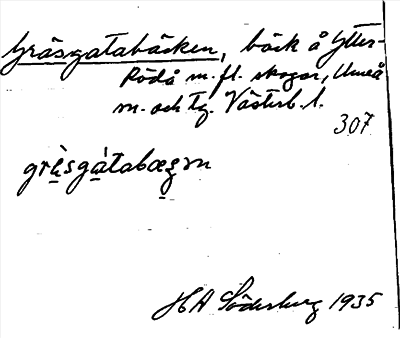 Gräsgatabäcken, bäck å Ytter-
Rödå m. fl. skogar, Umeå
m. och tg. Västerb. l.
307
gräsgatabæʒən
HA Söderberg 1935